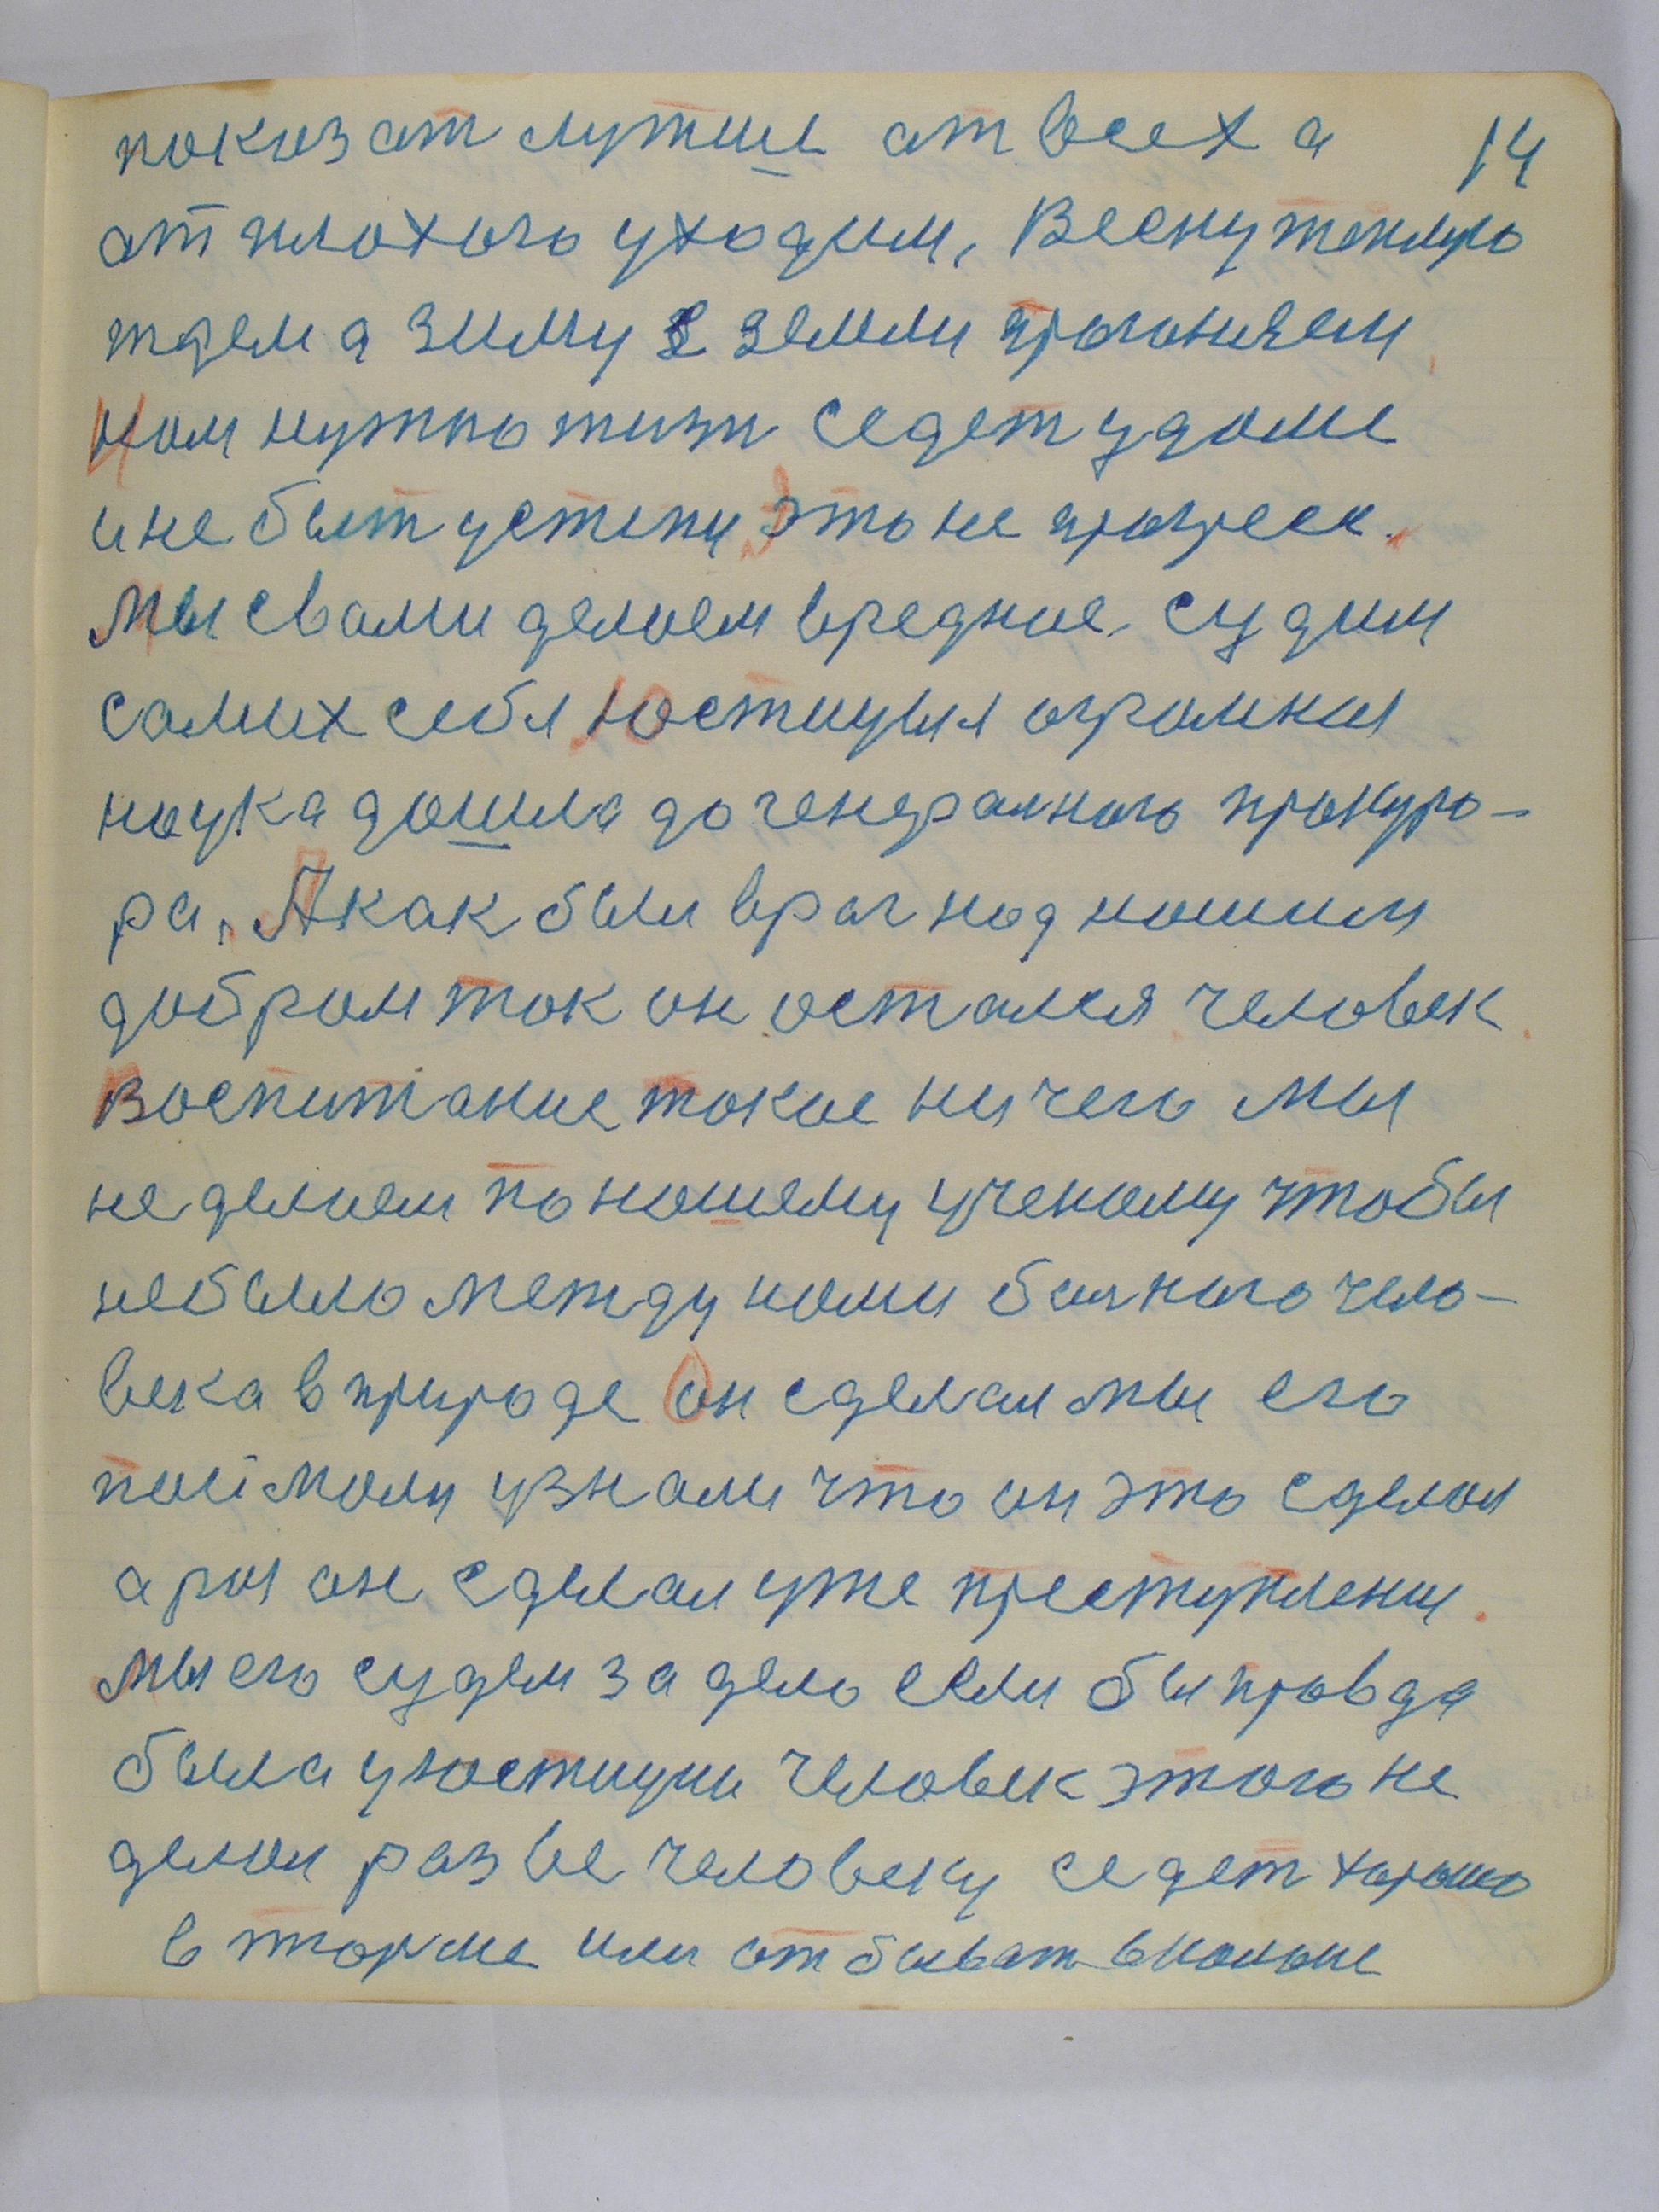 показат лутше от всех а 14
от плохого уходим, Весну теплую
ждем а зиму з земли прогоняем
Нам нужно жизн седет у доме
и не быт устепи, это не прогресс.
Мы свами делаем вредное, судим
самих себя. Юстиция огромная
наука дошла до генералного прокуро-
ра. А как был враг над нашим
добром так он остался человек.
Воспитание такое ничего мы
не делаем по нашему ученому чтобы
не было между нами болного чело-
века в природе Он сделал мы его
поймали узнали что он это сделал
а раз он сделал уже преступлени.
Мы его судем за дело если бы правда
была у юстиции человек этого не
делал разве человеку седет хорошо
в тюрме или отбыват в колоне